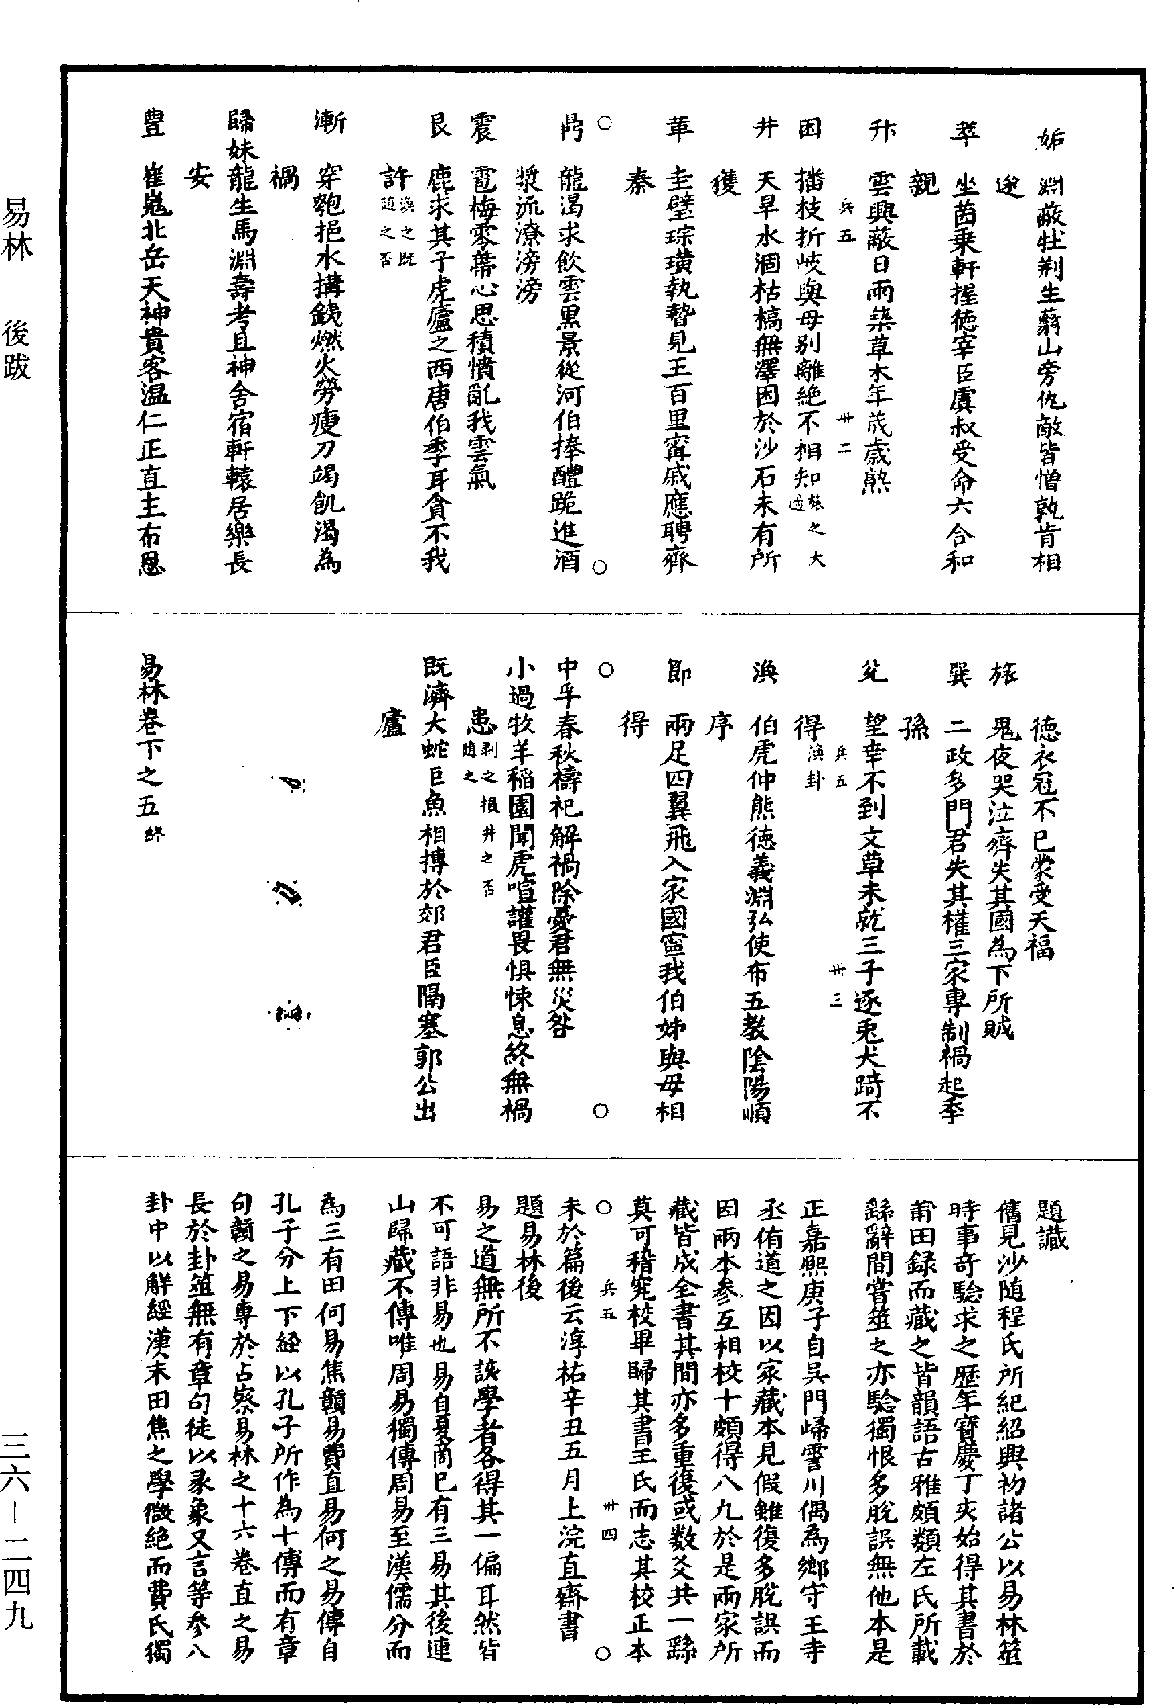 姤　淵蔽牡荊生蘙山旁仇敵皆憎孰肯相
途
萃　坐茵乘軒握徳宰臣虞叔受命六合和
親
升　雲興蔽日雨集草木年茂歲熟
兵五　卅二
困　播枝折岐與母别離絶不相知旅之大過
井　天旱水涸枯槁無澤困於沙石未有所
獲
革　圭璧琮璜執贄見王百里甯戚應聘齊
秦
○　○
鼎　龍渴求飲雲黒景從河伯捧醴跪進酒
漿流潦滂滂
震　雹梅零蔕心思積憒亂我雲氣
艮　鹿求其子虎廬之西唐伯季耳貪不我
許渙之既隨之否
漸　穿匏挹水搆錢燃火勞瘦力竭飢渴為
禍
歸妹龍生馬淵壽考且神舍宿軒轅居樂長
安
豊　崔嵬北岳天神貴客温仁正直主布恩
徳衣冠不已蒙受天福
旅　鬼夜哭泣齊失其國為下所賊
巽　二政多門君失其權三家專制禍起季
孫
兊　望幸不到文章未就三子逐兎犬踦不
得渙卦
兵五　卅三
渙　伯虎仲熊徳義淵弘使布五教陰陽順
序
節　兩足四翼飛入家國寧我伯姊與母相
得
○　○
中孚春秋禱祀解禍除憂君無災咎
小過牧羊稻園聞虎喧讙畏惧悚息終無禍
患剥之損井之否隨之
既濟大蛇巨魚相搏於郊君臣隔塞郭公出
廬
易林卷下之五終
題識
舊見沙随程氏所紀紹興初諸公以易林筮
時事奇驗求之歷年寶慶丁亥始得其書於
莆田録而藏之皆韻語古雅頗類左氏所載
繇辭間嘗筮之亦驗獨恨多脱誤無他本是
正嘉熙庚子自吳門歸霅川偶為郷守王寺
丞侑道之因以家藏本見假雖復多脱誤而
因兩本參互相校十頗得八九於是兩家所
藏皆成全書其間亦多重復或数爻共一繇
莫可稽究校畢歸其書王氏而志其校正本
○　兵五　卅四　○
末於篇後云淳祐辛丑五月上浣直齋書
題易林後
易之道無所不該學者各得其一偏耳然皆
不可語非易也易自夏商已有三易其後連
山歸藏不傳唯周易獨傳周易至漢儒分而
為三有田何易焦贛易費直易何之易傳自
孔子分上下經以孔子所作為十傳而有章
句贛之易專於占察易林之十六卷直之易
長於卦筮無有章句徒以彖象文言等參入
卦中以解經漢末田焦之學微絶而費氏獨
易林　後跋
三六－二四九